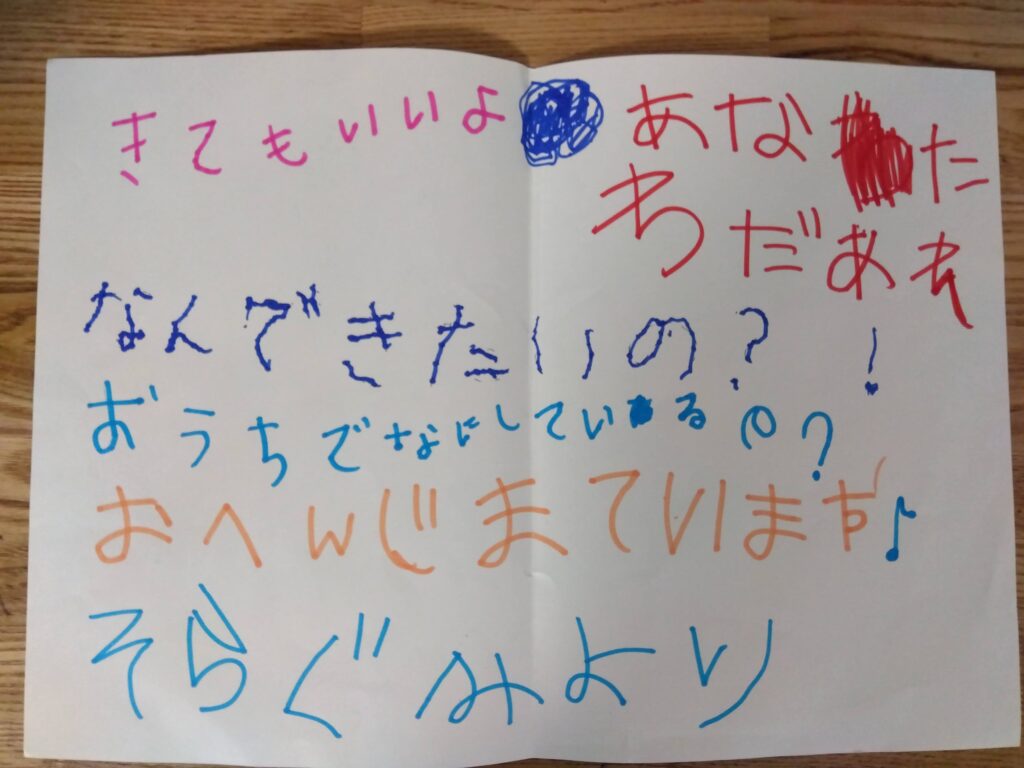 きてもいいよ
あなた
わだあれ
なんできたいの？！
おうちでなにしているの？
おへんじまています♪
そらぐみより